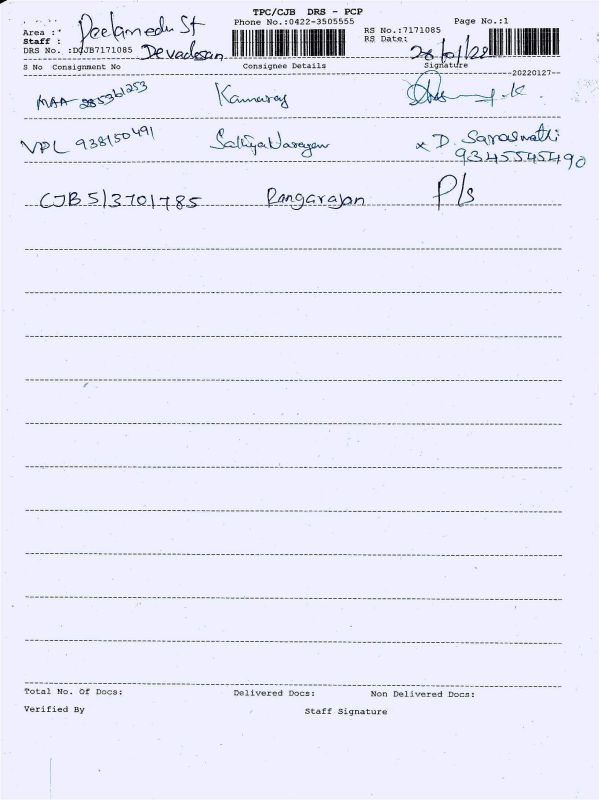 TPC/CJB DRS - PCP
Phone No.:0422-3505555
Page No.:1
Area : Peelamedu St
Staff : Devadasan
DRS No. :DCJB7171085
RS No.:7171085
RS Date: 28/01/22
S No Consignment No Consignee Details Signature
--20220127--
MAA 285361253 Kamaraj
VPL 938150491 Sathya Narayan x D. Saraswathi
9345545490
CJB 513701785 Rangarajan P/s
Total No. Of Docs: Delivered Docs: Non Delivered Docs:
Verified By Staff Signature